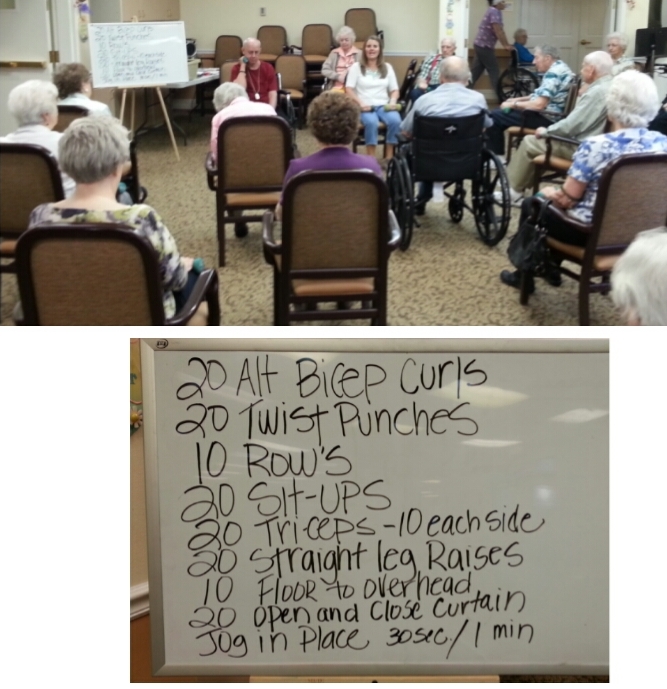 20 Alt Bicep Curls
20 Twist Punches
10 Row's
20 Sit-ups
20 Triceps - 10 each side
20 Straight leg Raises
10 Floor to overhead
20 open and Close Curtain
Jog in Place 30sec./1 min